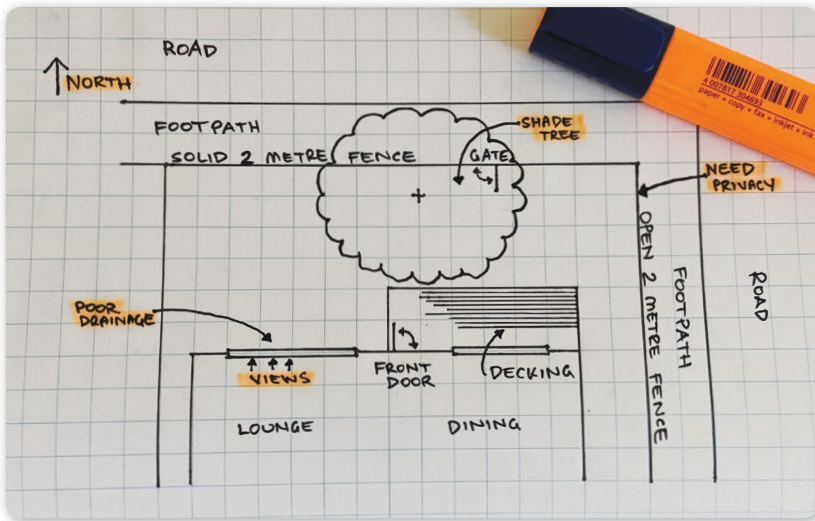 ROAD
NORTH
4 007817 304693
paper + copy + fax + inkjet + ink
FOOTPATH
SHADE
TREE
SOLID 2 METRE FENCE
GATE
NEED
PRIVACY
OPEN 2 METRE FENCE
FOOTPATH
ROAD
POOR
DRAINAGE
VIEWS
FRONT
DOOR
DECKING
LOUNGE
DINING